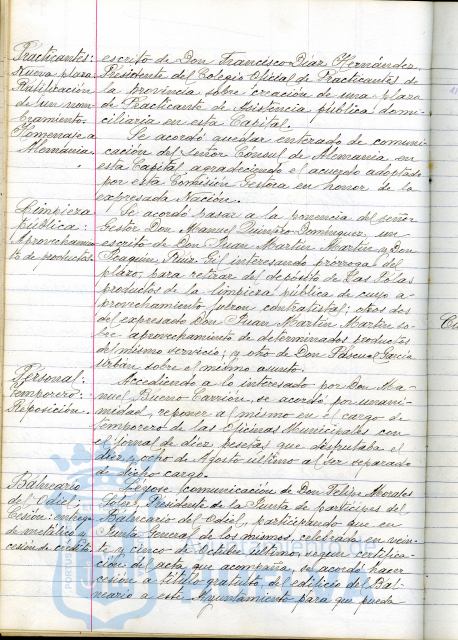 Practicantes:
Nueva plaza
Ratificación
de un nom
bramiento.
Homenaje a
Alemania.
escrito de Don Francisco Díaz Hernández,
Presidente del Colegio Oficial de Practicantes de
la provincia sobre creación de una plaza
de Practicante de Asistencia pública domi-
ciliaria en esta Capital.
Se acordó quedar enterado de comuni-
cación del señor Consul de Alemania en
esta Capital agradeciendo el acuerdo adoptado
por esta Comisión Gestora en honor de la
expresada Nación.
Limpieza
pública:
Aprovechamien
to de productos
Se acordó pasar a la ponencia del señor
Gestor Don Manuel Quintero Domínguez, un
escrito de Don Juan Martín Martín y Don
Joaquín Ruiz Gil interesando prórroga del
plazo para retirar del depósito de Las Tólas
productos de la limpieza pública de cuyo a-
provechamiento fueron contratistas; otros dos
del expresado Don Juan Martín Martín so-
bre aprovechamiento de determinados productos
del mismo servicio; y otro de Don Pascual García
Urbán sobre el mismo asunto.
Personal:
temporero:
Reposición.
Accediendo a lo interesado por Don Ma-
nuel Bueno Carrión, se acordó por unani-
midad, reponer al mismo en el cargo de
temporero de las Oficinas Municipales con
el jornal de diez pesetas que disfrutaba el
diez y ocho de Agosto último al ser separado
de dicho cargo.
Balneario
del Odiel:
Cesión: entrega
de metálico y
cesión de crédito
Léyose comunicación de Don Felipe Morales
Presidente de la Junta de partícipes del
Balneario del Odiel, participando que en
Junta General de los mismos, celebrada en vein-
te y cinco de Octubre último, según certifica-
ción del acta que acompaña, se acordó hacer
cesión a título gratuito del edificio del Bal-
neario a este Ayuntamiento para que pueda